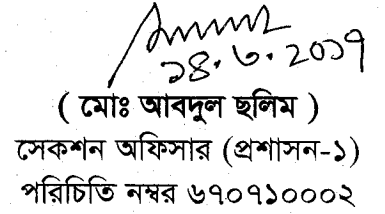 ১৪.৩.২০১৭
( মোঃ আবদুল ছলিম )
সেকশন অফিসার (প্রশাসন-১)
পরিচিতি নম্বর ৬৭০৭১০০০২